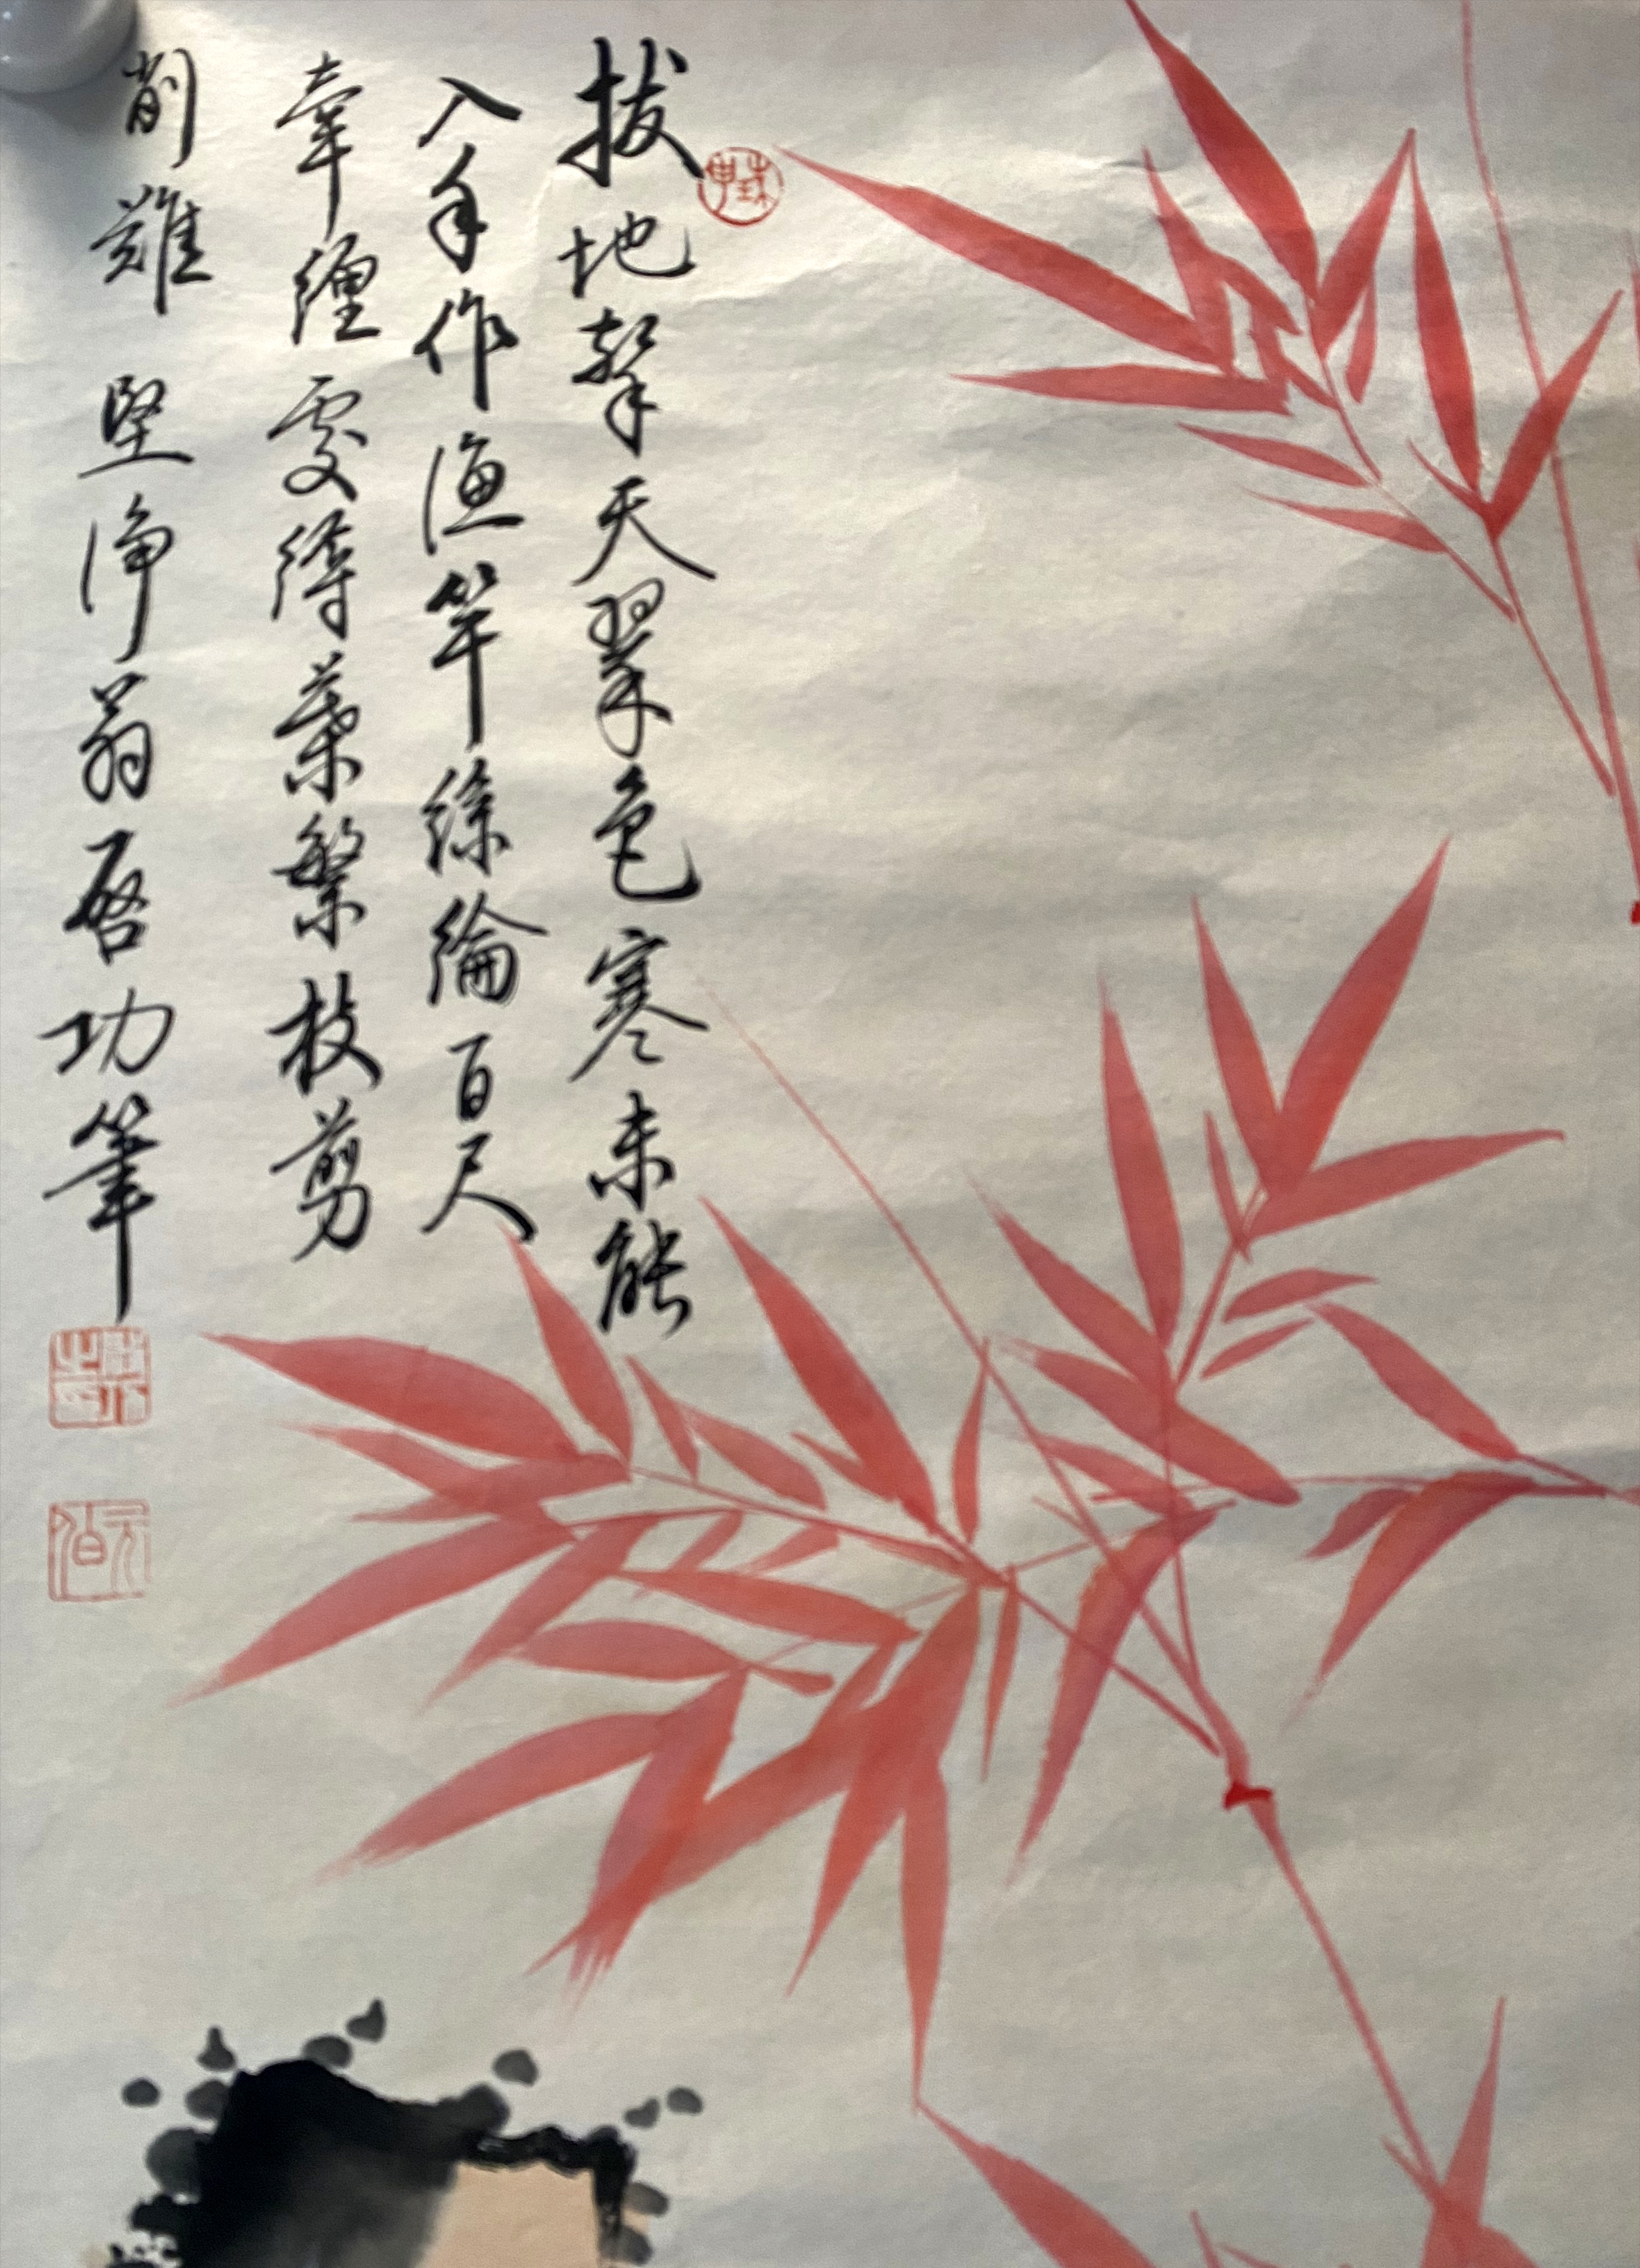 拔地擎天翠色寒未能
入手作漁竿絲綸百尺
牽纏處縛葉繁枝剪
削難 堅淨翁啓功筆
元白